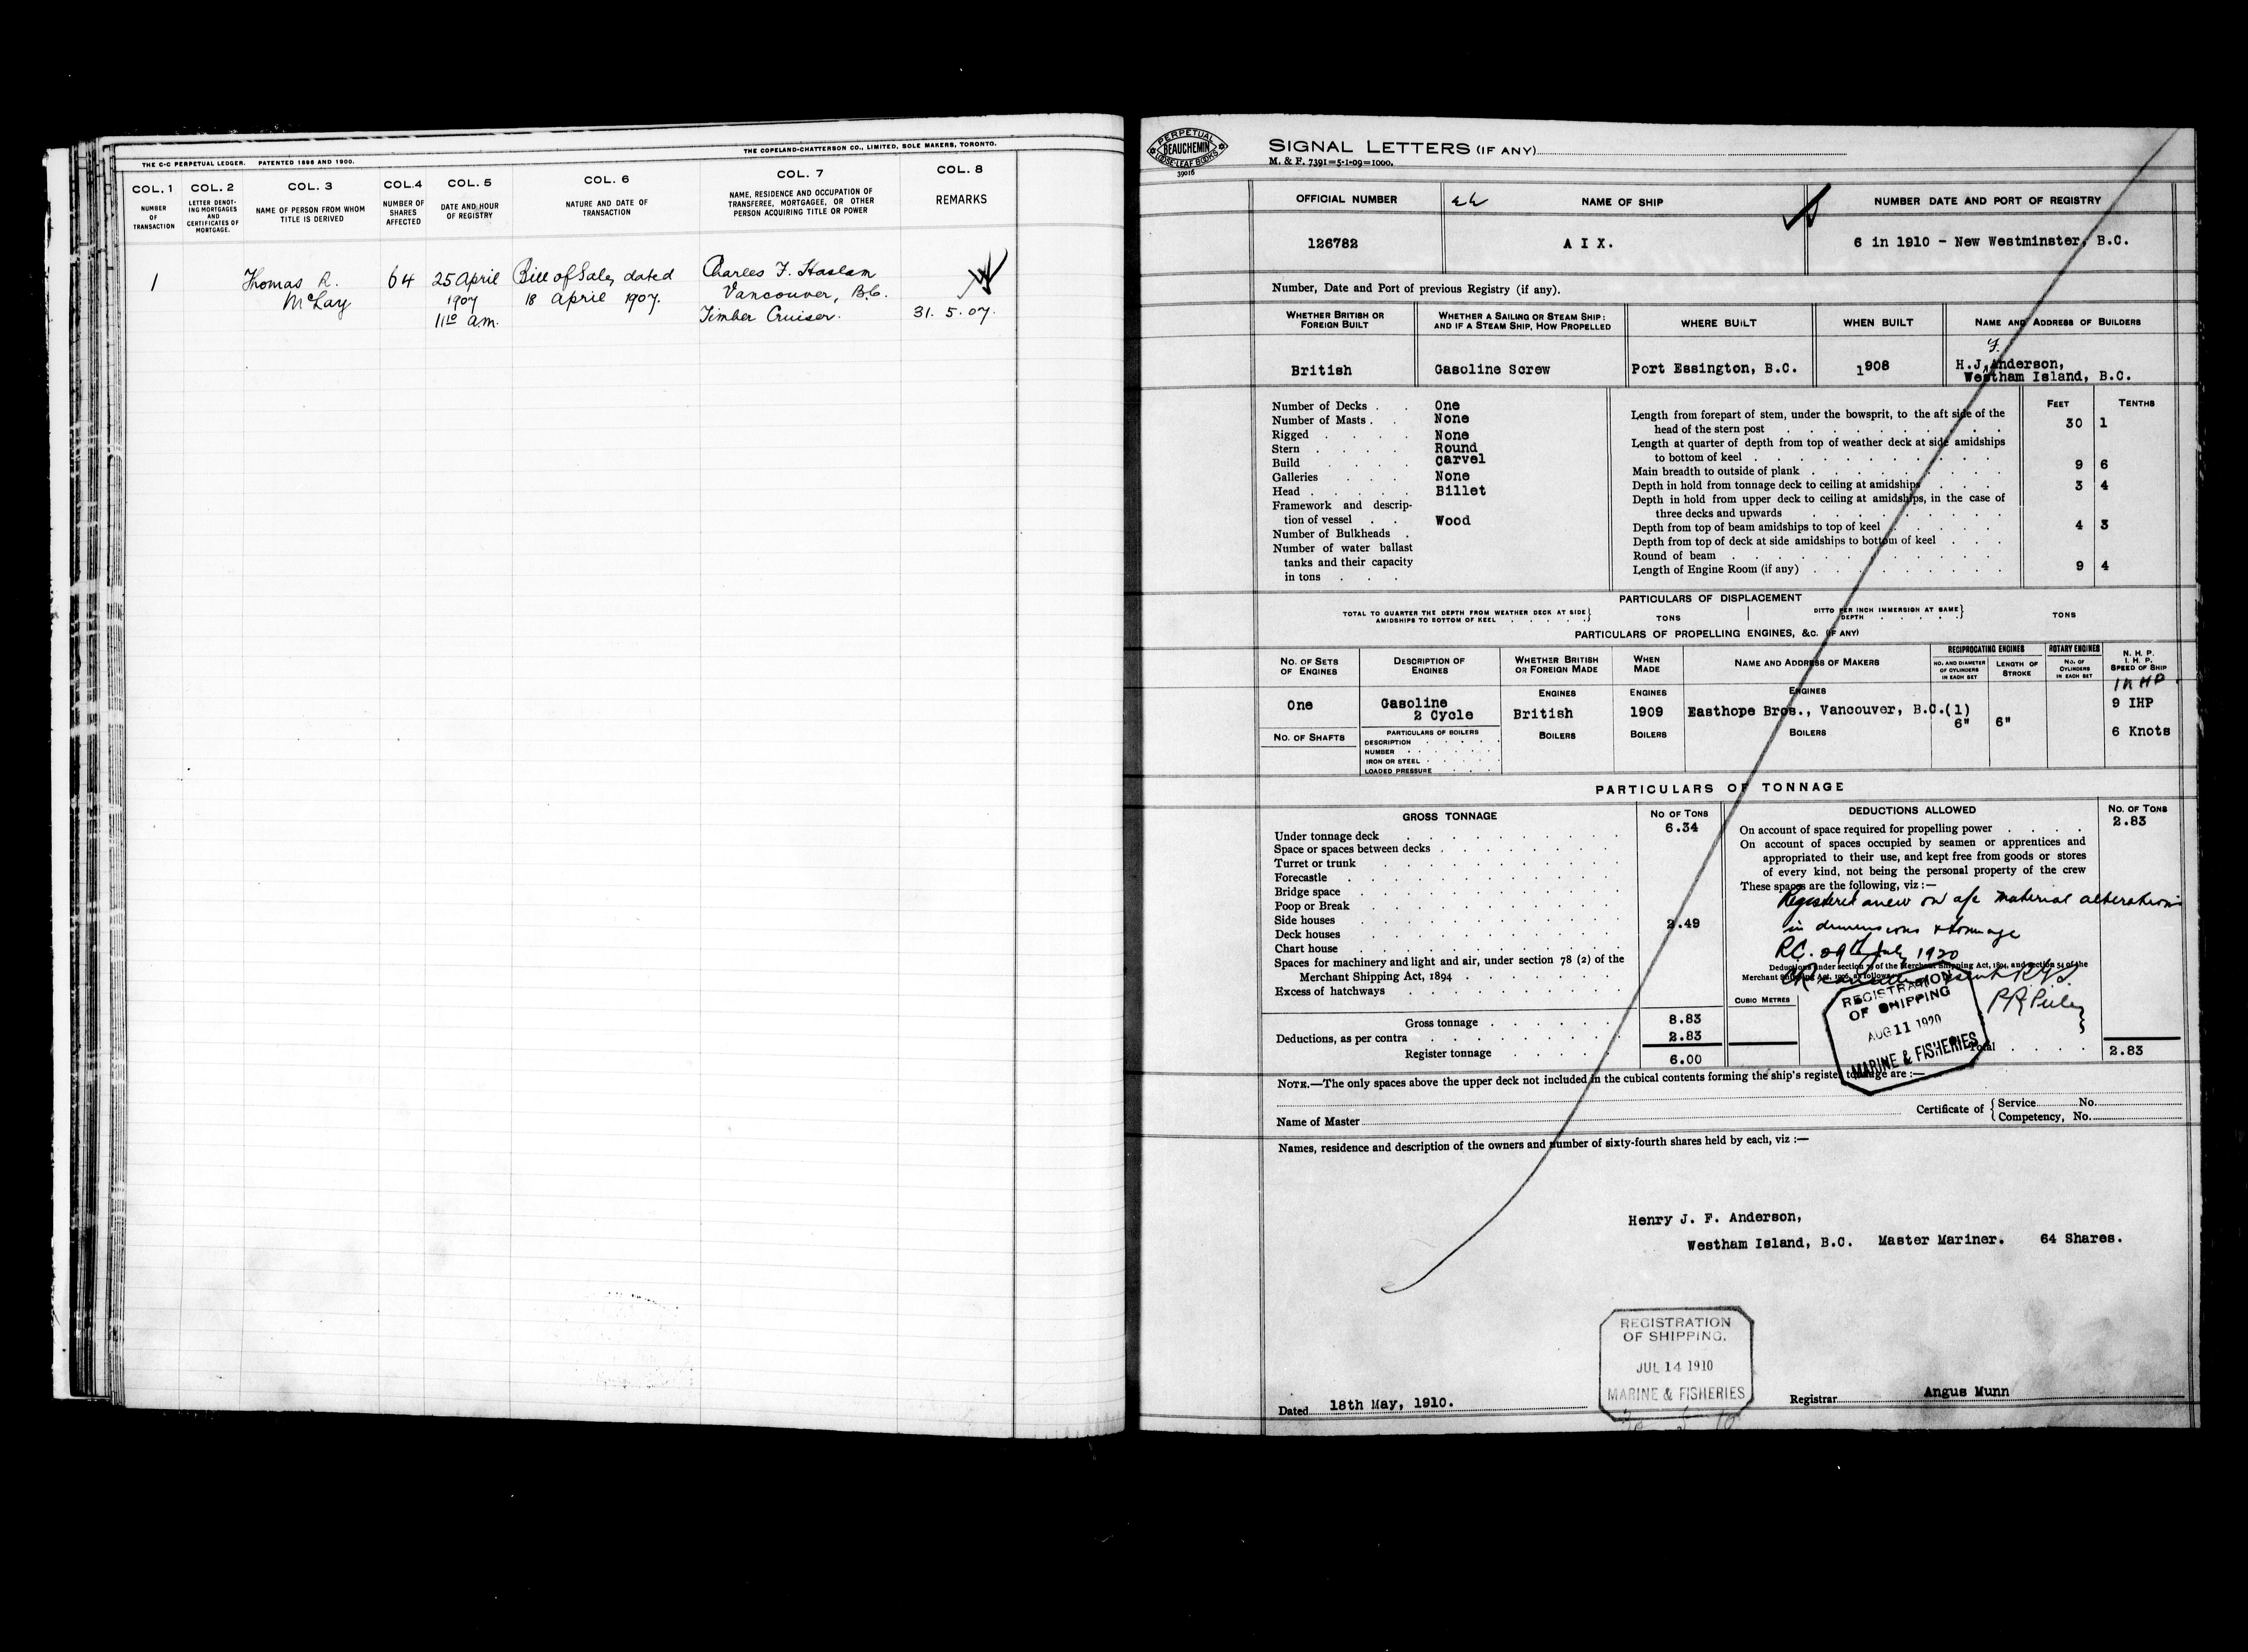 THE C-C PERPETUAL LEDGER. PATENTED 1896 AND 1900.
THE COPELAND-CHATTERSON CO., LIMITED, SOLE MAKERS, TORONTO.
COL. 1 COL. 2 COL. 3 COL.4 COL. 5 COL. 6 COL. 7 COL. 8
NUMBER OF TRANSACTION
LETTER DENOTING MORTGAGES AND CERTIFICATES OF MORTGAGE.
NAME OF PERSON FROM WHOM TITLE IS DERIVED
NUMBER OF SHARES AFFECTED
DATE AND HOUR OF REGISTRY
NATURE AND DATE OF TRANSACTION
NAME, RESIDENCE AND OCCUPATION OF TRANSFEREE, MORTGAGEE, OR OTHER PERSON ACQUIRING TITLE OR POWER
REMARKS
1 Thomas R. 64 25 April Bill of Sale, dated Charles F. Haslam
McLay 1907 18 April 1907. Vancouver, B.C.
11 10 a.m. Timber Cruiser. 31. 5. 07.
PERPETUAL
BEAUCHEMIN
LOOSE-LEAF BOOKS
39016
SIGNAL LETTERS (IF ANY)
M. & F. 7391=5-1-09=1000.
OFFICIAL NUMBER NAME OF SHIP NUMBER DATE AND PORT OF REGISTRY
126782 A I X. 6 in 1910 - New Westminster, B.C.
Number, Date and Port of previous Registry (if any).
WHETHER BRITISH OR FOREIGN BUILT
WHETHER A SAILING OR STEAM SHIP: AND IF A STEAM SHIP, HOW PROPELLED
WHERE BUILT
WHEN BUILT
NAME AND ADDRESS OF BUILDERS
F.
British Gasoline Screw Port Essington, B.C. 1908 H.J. Anderson,
Westham Island, B.C.
Number of Decks . . One
Number of Masts . . None
Rigged . . . . None
Stern . . . . Round
Build . . . . Carvel
Galleries . . . None
Head . . . . . Billet
Framework and descrip-
tion of vessel . . Wood
Number of Bulkheads .
Number of water ballast
tanks and their capacity
in tons . . .
FEET TENTHS
Length from forepart of stem, under the bowsprit, to the aft side of the
head of the stern post 30 1
Length at quarter of depth from top of weather deck at side amidships
to bottom of keel
Main breadth to outside of plank 9 6
Depth in hold from tonnage deck to ceiling at amidships 3 4
Depth in hold from upper deck to ceiling at amidships, in the case of
three decks and upwards
Depth from top of beam amidships to top of keel 4 3
Depth from top of deck at side amidships to bottom of keel
Round of beam
Length of Engine Room (if any) 9 4
PARTICULARS OF DISPLACEMENT
TOTAL TO QUARTER THE DEPTH FROM WEATHER DECK AT SIDE AMIDSHIPS TO BOTTOM OF KEEL TONS
DITTO PER INCH IMMERSION AT SAME DEPTH TONS
PARTICULARS OF PROPELLING ENGINES, &C. (IF ANY)
NO. OF SETS OF ENGINES
DESCRIPTION OF ENGINES
WHETHER BRITISH OR FOREIGN MADE
WHEN MADE
NAME AND ADDRESS OF MAKERS
RECIPROCATING ENGINES
NO. AND DIAMETER OF CYLINDERS IN EACH SET
LENGTH OF STROKE
ROTARY ENGINES
NO. OF CYLINDERS IN EACH SET
N. H. P.
I. H. P.
SPEED OF SHIP
ENGINES ENGINES ENGINES 1 N HP.
One Gasoline 9 IHP
2 Cycle British 1909 Easthope Bros., Vancouver, B.C. (1)
6" 6"
NO. OF SHAFTS PARTICULARS OF BOILERS BOILERS BOILERS BOILERS 6 Knots
DESCRIPTION
NUMBER
IRON OR STEEL
LOADED PRESSURE
PARTICULARS OF TONNAGE
GROSS TONNAGE NO OF TONS
Under tonnage deck 6.34
Space or spaces between decks
Turret or trunk
Forecastle
Bridge space
Poop or Break
Side houses 2.49
Deck houses
Chart house
Spaces for machinery and light and air, under section 78 (2) of the
Merchant Shipping Act, 1894
Excess of hatchways
Gross tonnage 8.83
Deductions, as per contra 2.83
Register tonnage 6.00
DEDUCTIONS ALLOWED NO. OF TONS
On account of space required for propelling power 2.83
On account of spaces occupied by seamen or apprentices and
appropriated to their use, and kept free from goods or stores
of every kind, not being the personal property of the crew
These spaces are the following, viz :—
Registered anew on a/c material alterations
in dimensions & tonnage
R.C. 29th July 1920
Deductions under section 79 of the Merchant Shipping Act, 1894, and section 54 of the
Merchant Shipping Act, 1906, as follows
CUBIC METRES
REGISTRATION
OF SHIPPING
AUG 11 1920
MARINE & FISHERIES
Total 2.83
NOTE.—The only spaces above the upper deck not included in the cubical contents forming the ship's register tonnage are :—
Name of Master
Certificate of { Service No.
Competency, No.
Names, residence and description of the owners and number of sixty-fourth shares held by each, viz :—
Henry J. F. Anderson,
Westham Island, B.C. Master Mariner. 64 Shares.
REGISTRATION
OF SHIPPING.
JUL 14 1910
MARINE & FISHERIES
Dated 18th May, 1910. Registrar Angus Munn